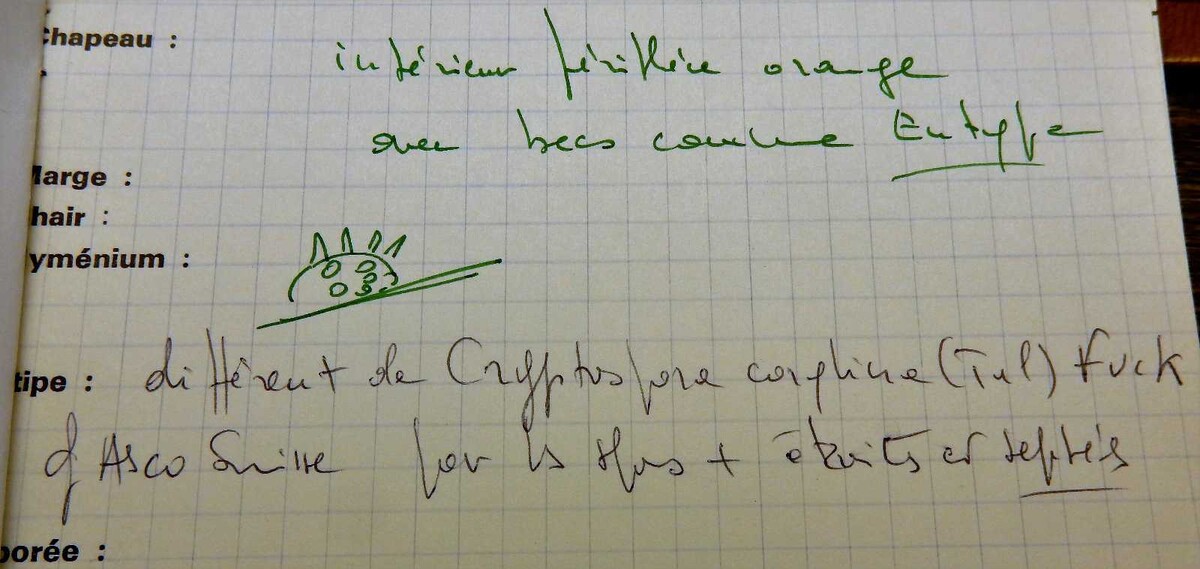 Chapeau :
intérieur périthèce orange
avec becs comme Eutype
Marge :
hair :
yménium :
tipe : différent de Cryptospora corylina (Tul) Fuck
cf Asco Suisse par les spores + étroites et septées
porée :